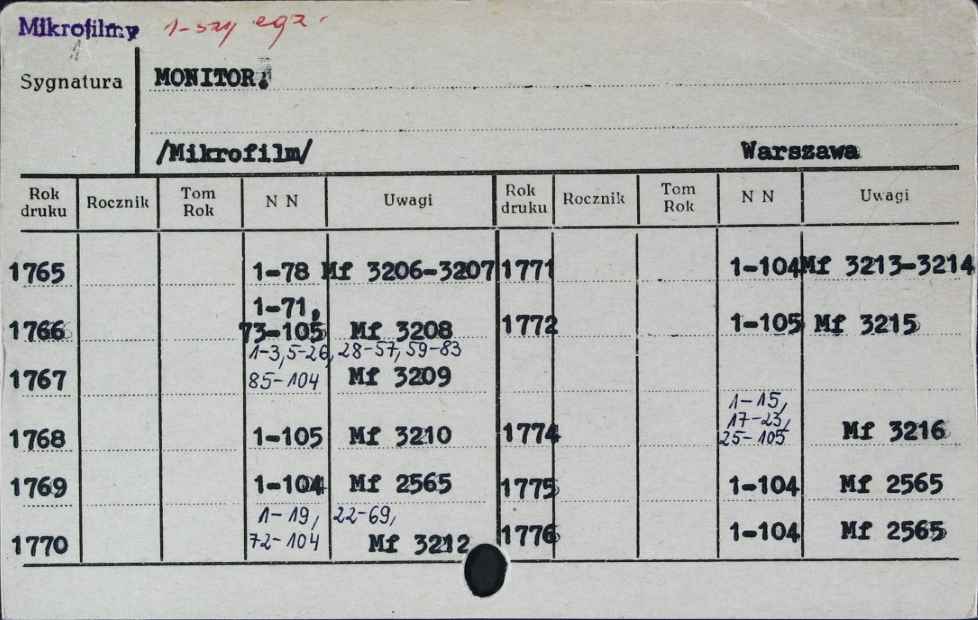 Mikrofilmy 1-szy egz.
1
Sygnatura MONITOR.
/Mikrofilm/ Warszawa
Rok druku Rocznik Tom Rok N N Uwagi Rok druku Rocznik Tom Rok N N Uwagi
1765 1-78 Mf 3206-3207 1771 1-104 Mf 3213-3214
1-71,
1766 73-105 Mf 3208 1772 1-105 Mf 3215
1-3, 5-26, 28-57, 59-83
1767 85-104 Mf 3209
1-15,
17-23,
1768 1-105 Mf 3210 1774 25-105 Mf 3216
1769 1-104 Mf 2565 1775 1-104 Mf 2565
1-19, 22-69,
1770 72-104 Mf 3212 1776 1-104 Mf 2565